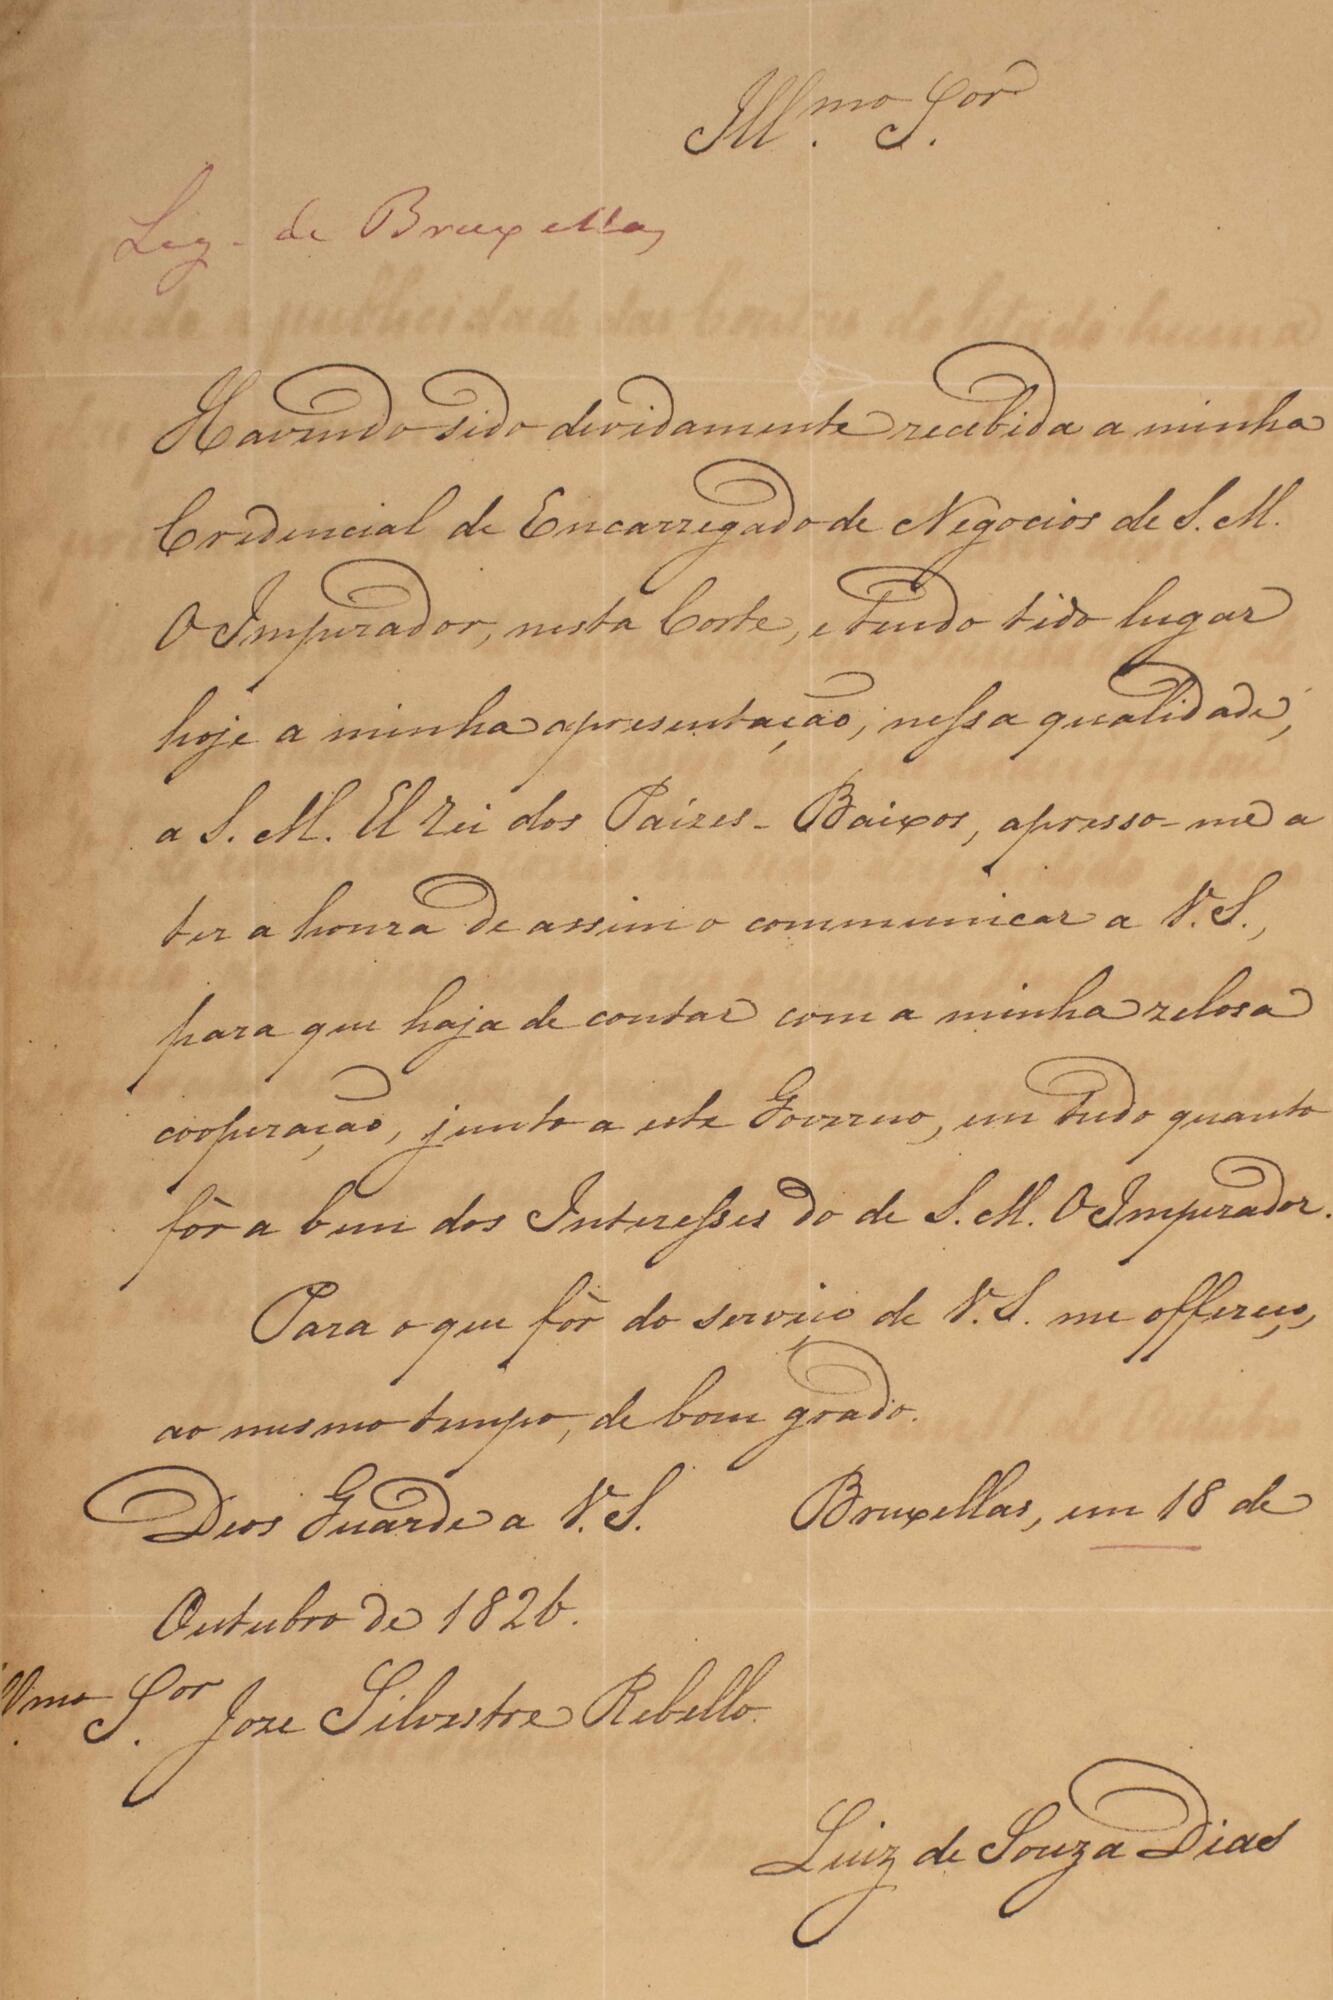 Ill.mo S.or
Leg. de Bruxellas
Havendo sido devidamente recebida a minha
Credencial de Encarregado de Negocios de S. M.
O Imperador, nesta Corte, e tendo tido lugar
hoje a minha apresentação, nessa qualidade,
a S. M. El Rei dos Paizes-Baixos, apresso-me a
ter a honra de assim o communicar a V. S.,
para que haja de contar com a minha zelosa
cooperação, junto a este Governo, em tudo quanto
fôr a bem dos Interesses do de S. M. O Imperador.
Para o que fôr do serviço de V. S. me offereço,
ao mesmo tempo, de bom grado.
Deos Guarde a V. S. Bruxellas, em 18 de
Outubro de 1826.
Ill.mo S.or Joze Silvestre Rebello.
Luiz de Souza Dias